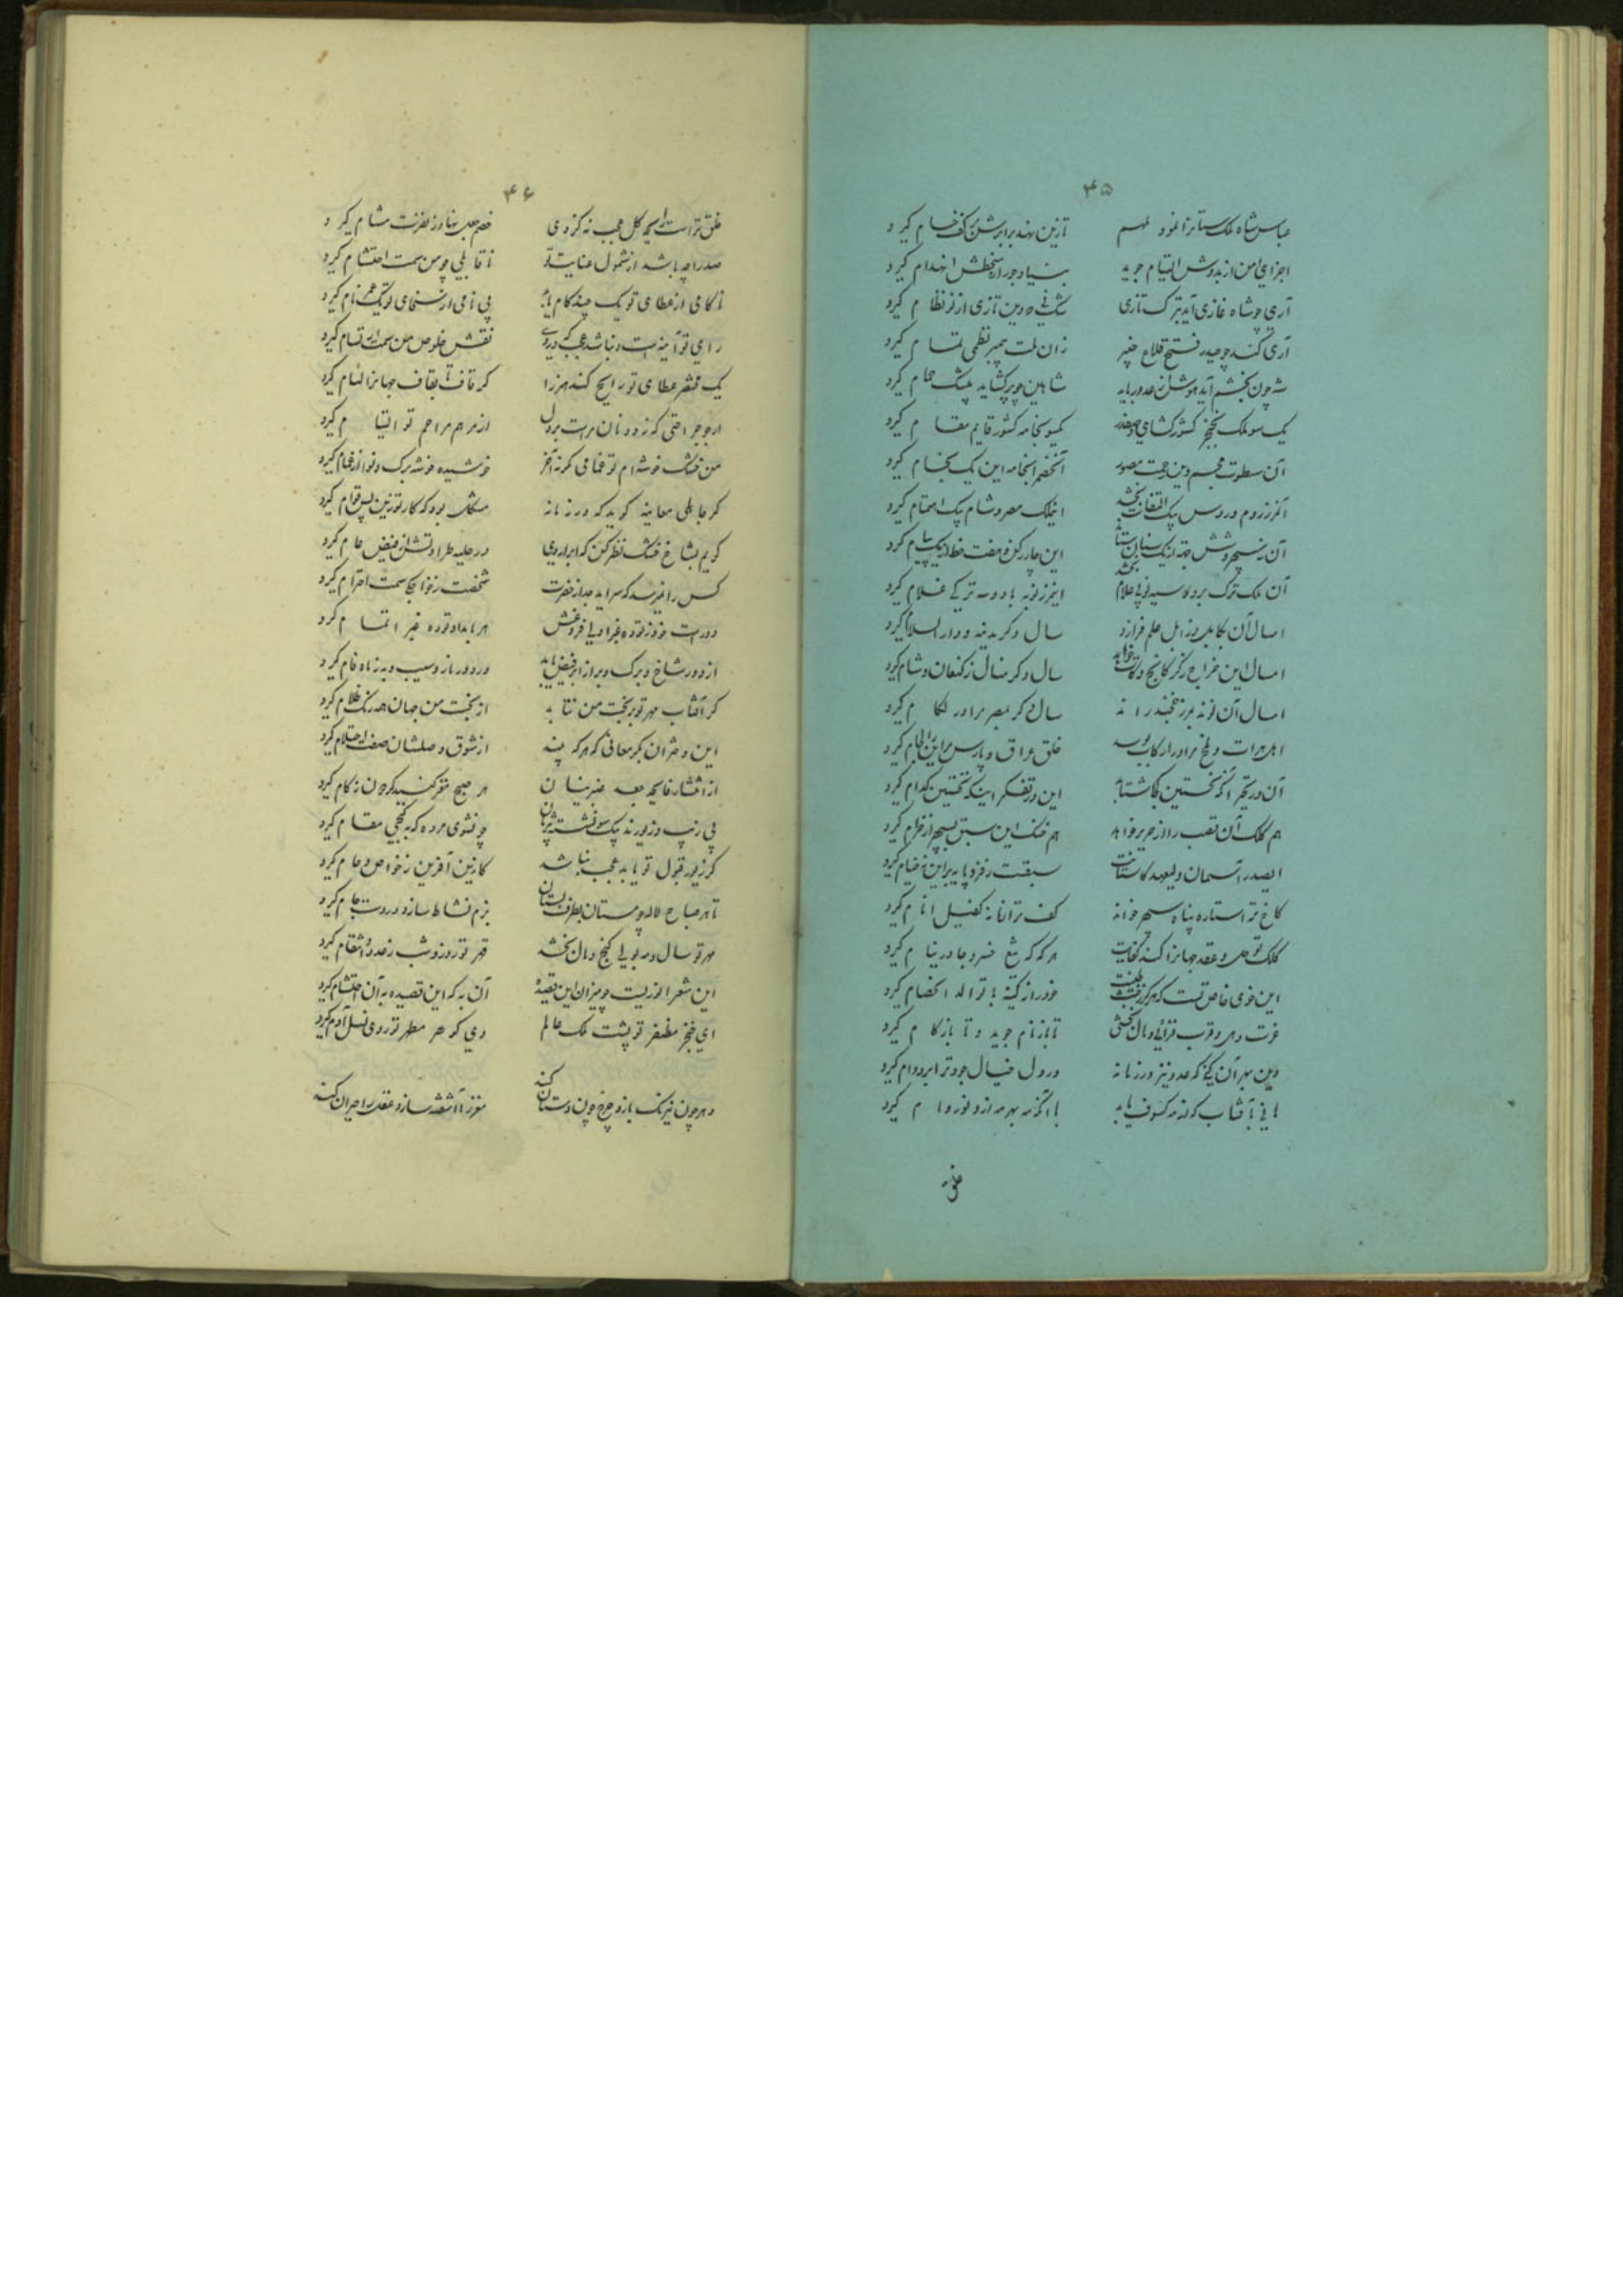 ۴۵
عباس شاه ملک ستان را نمود ملهم تا زین نهد برابرش بر کف خسام گیرد
اجزای امن از بدوش التیام جوید بنیاد جور از سخطش انهدام گیرد
آری چو شاه غازی آید بترک تازی دین تازی از نو نظام گیرد
آری کند چو حیدر فتح قلاع خیبر زان ملت پیمبر نظمی تمام گیرد
شه چون بخشم آید هوش از عدو رباید شاهین چو پر گشاید بیشک حمام گیرد
یک سو ملک بخنجر کشور گشای و صفدر یکسو بخامه کشور قایم مقام گیرد
آن سطوت مجسم وین رحمت مصور
از مرز روم و روس یک التفات بخشد ملک مصر و شام یک اهتمام گیرد
آن نه سپهر و شش جهة از یک سنان ستاند این چار رکن و هفت خط از یک پیام گیرد
آن ملک ترک بر دو سیه غلام بخشد این مرز نوبه با دو سه ترکی غلام گیرد
امسال آن بکابل وز ابل علم فرازد سال دگر مدینه و دار السلام گیرد
امسال این خراج ز گرگانج و کات خواهد سال دگر منال ز کنعان و شام گیرد
امسال آن نوند بمرز خجند راند سال دگر بمصر مر او را لگام گیرد
اهل هرات و بلخ مر او را رکاب بوسد خلق عراق و پارس مر این را لجام گیرد
آن در تحیر آنکه نخستین کجا شتابد این در تفکر اینکه نخستین کدام گیرد
هم کلک آن قصب را از صریر خواند هم خنک این سبق بسپهر از خرام گیرد
ای صدر آسمان ولیعهد کاستانت سبقت ز فر و پایه بر این نه خیام گیرد
کاخ ترا ستاره پناه سپهر خواند کف ترا زمانه کفیل انام گیرد
کلک تو حل و عقد جهانرا کند کفایت هر گه که تیغ خسرو جا در نیام گیرد
این خوی خاص تست که هرگز طینت خود را ز کینه با تو الد الخصام گیرد
عزت دهی و قرب فزائی و مال بخشی تا باز نام جوید و تا باز کام گیرد
وین بهر آن کنی که عدو نیز در زمانه در دل خیال جود ترا بر دوام گیرد
مانی بآفتاب که از مه کسوف یابد با آنکه مه بهر مه از و نور وام گیرد
خلق
۴۶
خلق ترا ست رایحه گل عجب نه گر وی خصم جعل نهاد ز نفرت مشام گیرد
صدرا چه باشد از شمول عنایت تو نا قابلی چو من سمت احتشام گیرد
ناکامی از عطای تو یک چند کام یابد بی نامی از سخای تو یک عمر نام گیرد
رای تو آینه است و نباشد عجب که در وی نقش خلوص من سمت ارتسام گیرد
یک مختصر عطای تو رایج کند هنر را گر قاف تا بقاف جهانرا لئام گیرد
ار هر جراحتی که ز دونان مراست بر دل از مرهم مراحم تو التیام گیرد
من خشک خوشه ام تو غمامی گر نه آخر خوشیده خوشه برگ و نوا از غمام گیرد
گر جاهلی معاینه گوید که در زمانه مشکل بود که کار تو زین پس قوام گیرد
گویم بشاخ خشک نظر کن که ابر اردی در حلیه طراوتش از فیض عام گیرد
کس را نمیرسد که سراید جدا ز خضرت شخصت ز خواجگی سمت احترام گیرد
دور است خور ز توده غبرا ولی فروغش هر بامداد توده غبرا تمام گیرد
از دور شاخ و برگ و بر از ابر فیض یابد ورد و رباز و سیب و به از ماه فام گیرد
گر آفتاب مهر تو بر بخت من نتابد از بخت من جهان همه رنگ ظلام گیرد
این دختران بکر معانی که هر که بیند از شوق وصلشان صفت احتلام گیرد
از انتشار رایحه جعد عنبرینشان هر صبح مغز گنبد گردون زکام گیرد
بی زیب و زیورند یک سو نشسته پژمان چو نشوی مرده که بکنجی مقام گیرد
گر زیور قبول تو یابد عجب نباشد کازین آفرین ز خواص و عوام گیرد
تا هر صباح لاله چو مستان بطرف بستان بزم نشاط سازد و در دست جام گیرد
مهر تو سال و مه بولی گنج و مال بخشد قهر تو روز و شب ز عدو انتقام گیرد
این شعر انوریست چو میزان این قصیده آن به که این قصیده به آن اختتام گیرد
ای خنجر مظفر تو پشت ملک عالم وی گوهر مطهر تو روی نسل آدم گیرد
دهر چون نیرنگ بازد چرخ چون دستان کند مغز را آشفته سازد عقل را حیران کند